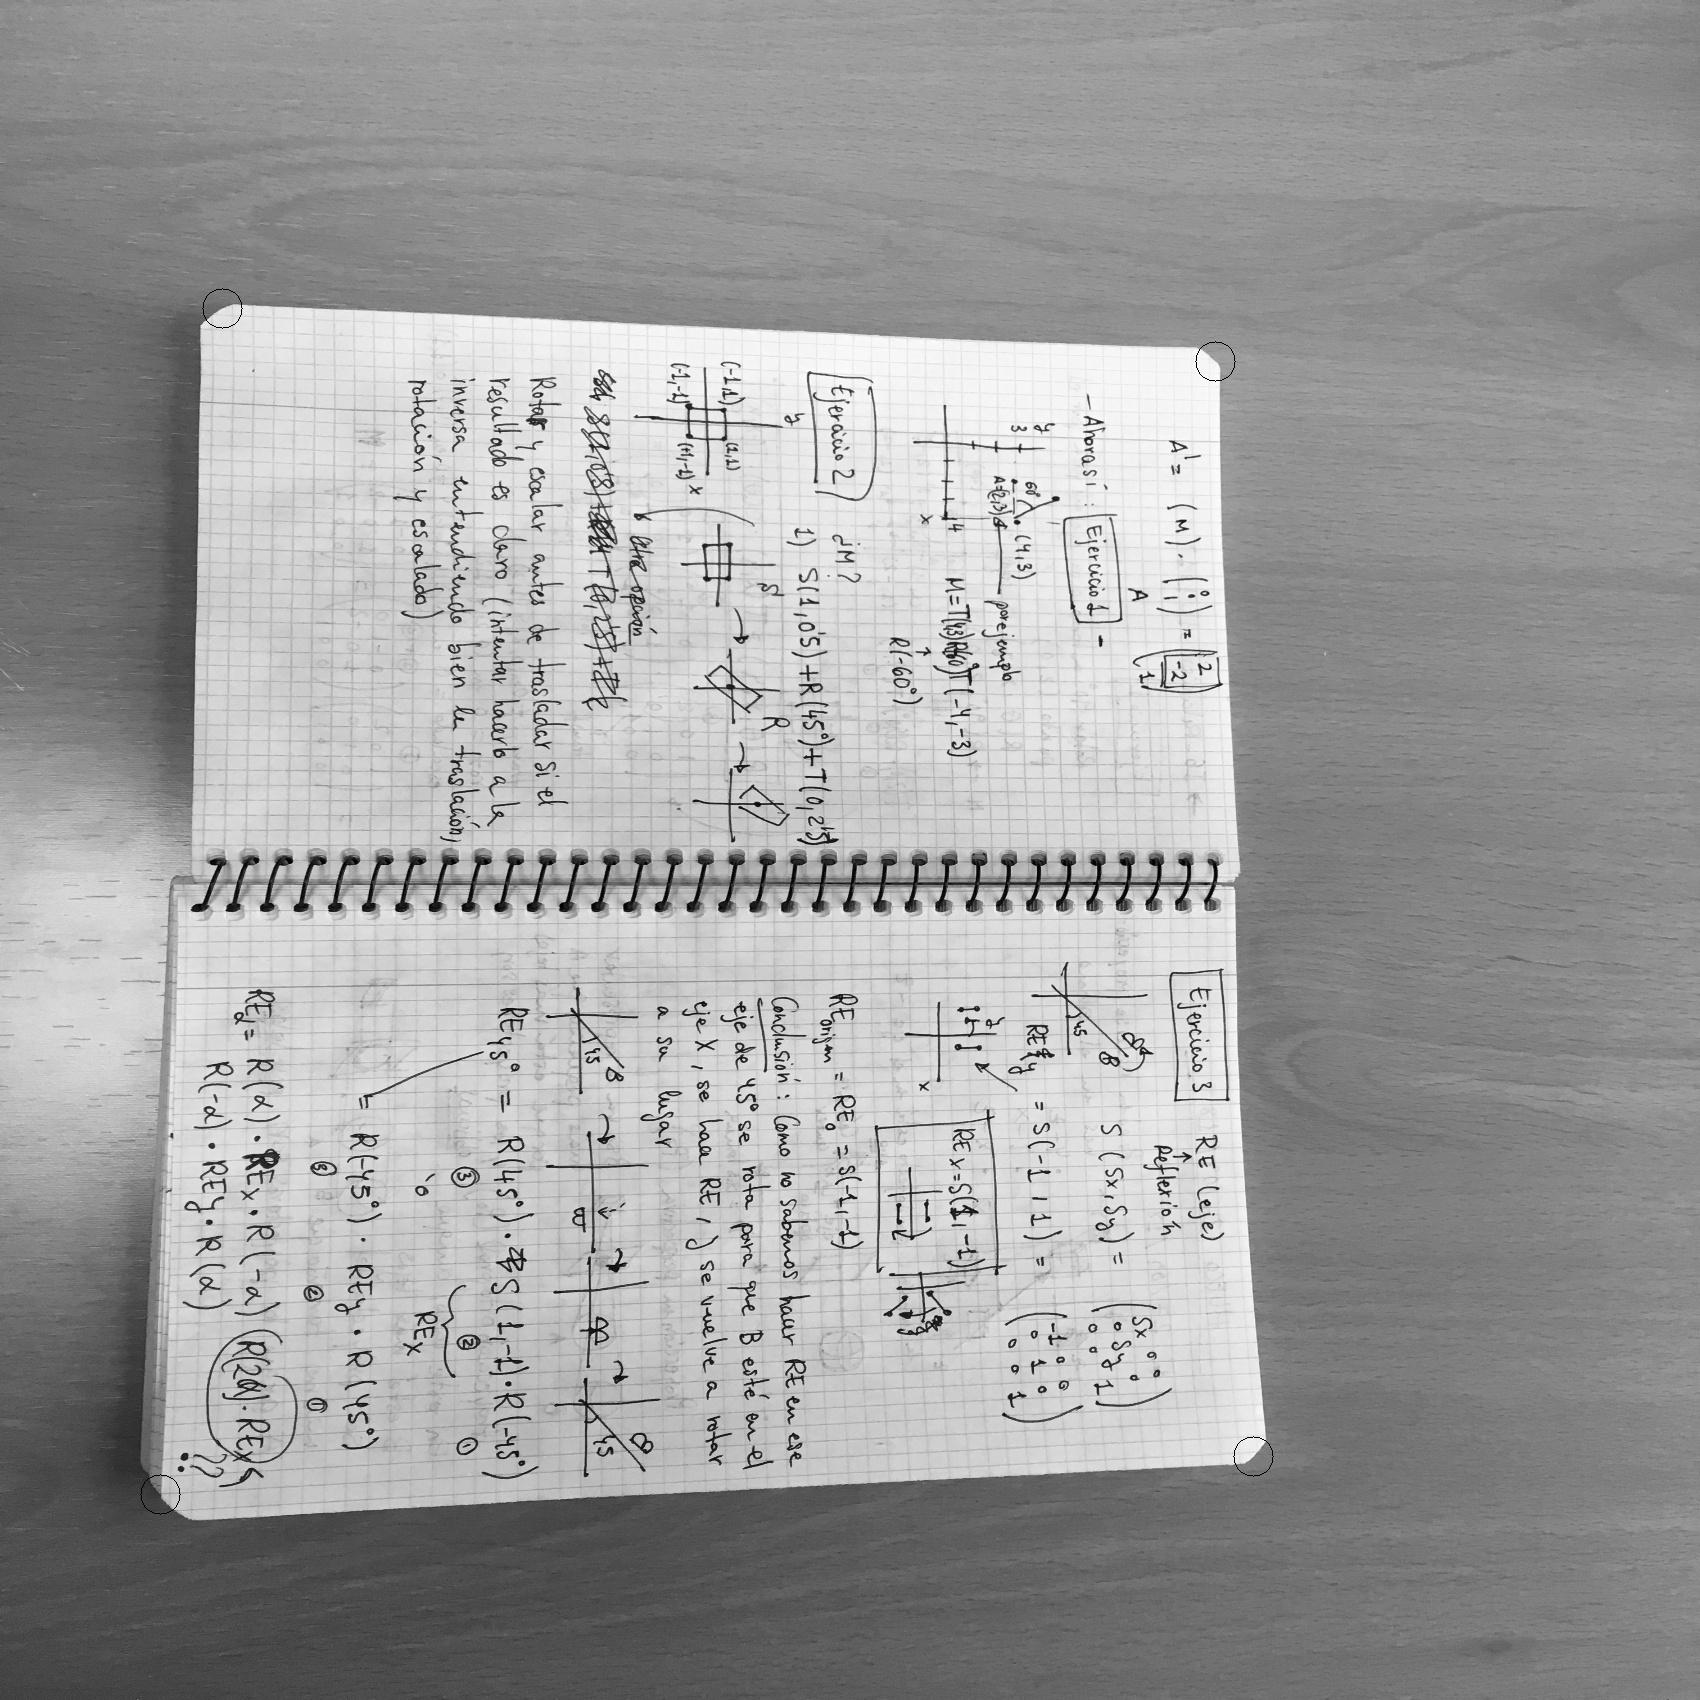 A' = (M) · (0 0 1) = (2 -2 1)
A
- Ahora sí: Ejercicio 1 -
y
3
60º
(4,3)
A=(2,3)
por ejemplo
4
x
M = T(4,3)R(60º)T(-4,-3)
R(-60º)
Ejercicio 2
¿M?
1) S(1,0'5)+R(45º)+T(0,2'5)
y
(-1,1)
(1,1)
(-1,-1)
(+1,-1)
x
S
R
Otra opción
Rotar y escalar antes de trasladar si el
resultado es claro (intentar hacerlo a la
inversa entendiendo bien la traslación,
rotación y escalado)
Ejercicio 3
RE (eje)
Reflexión
45
B
S(Sx, Sy) = (Sx 0 0
0 Sy 0
0 0 1)
REy = S(-1, 1) = (-1 0 0
0 1 0
0 0 1)
y
x
REx = S(1, -1)
REorigen = RE0 = S(-1,-1)
Conclusión: Como no sabemos hacer RE en ese
eje de 45º se rota para que B esté en el
eje X, se hace RE, y se vuelve a rotar
a su lugar
45
B
45
RE45º = R(45º) · S(1,-1) · R(-45º)
3 2 1
ó
REx
= R(-45º) · REy · R(45º)
3 2 1
REα = R(α) · REx · R(-α) (R(2α) · REx)
R(-α) · REy · R(α)
¿?